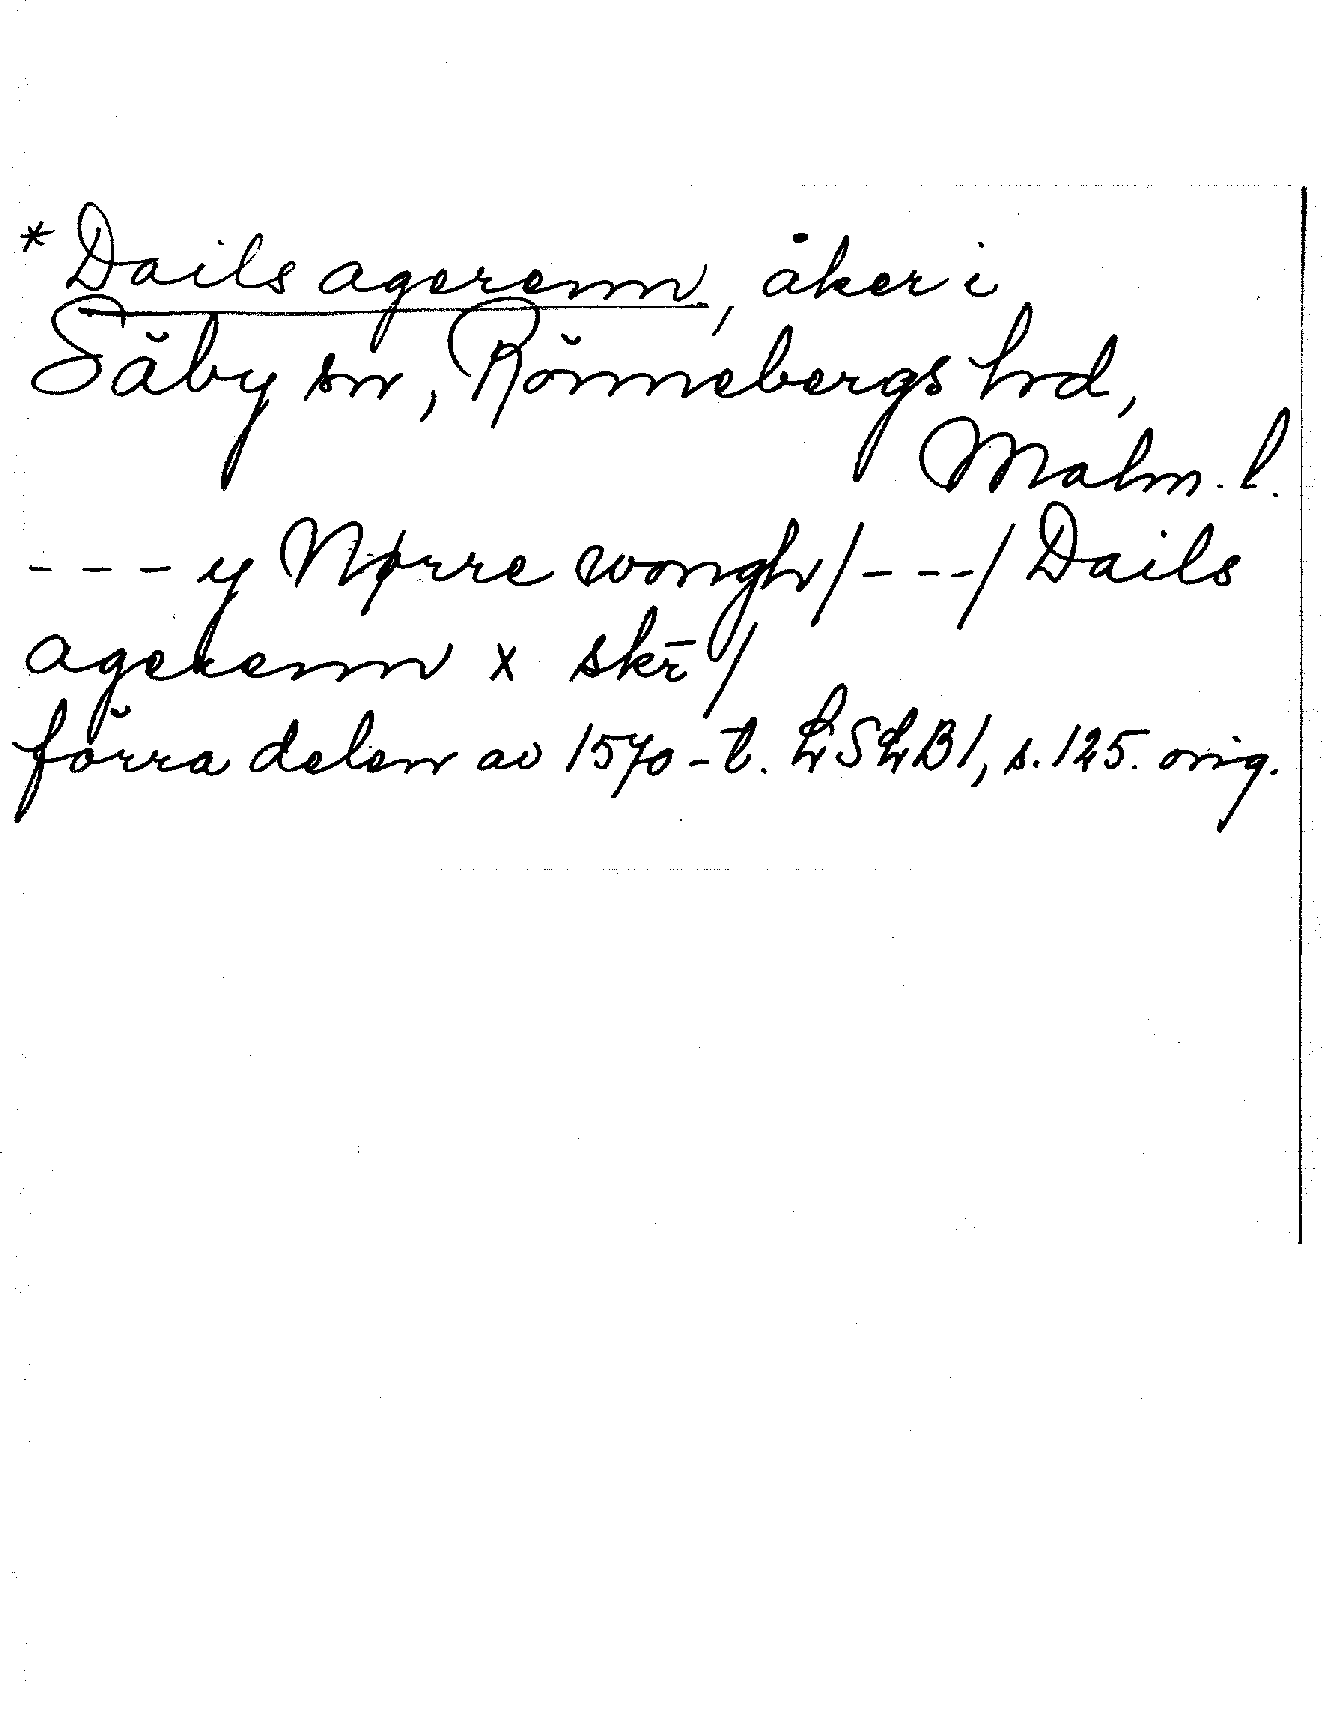 * Dails agerenn, åker i
Säby sn, Rönnebergs hrd,
Malm. l.
--- y Nørre wongh/---/ Dails
agerenn x skr̄/
förra delen av 1570-t. LSLB1, s. 125. orig.